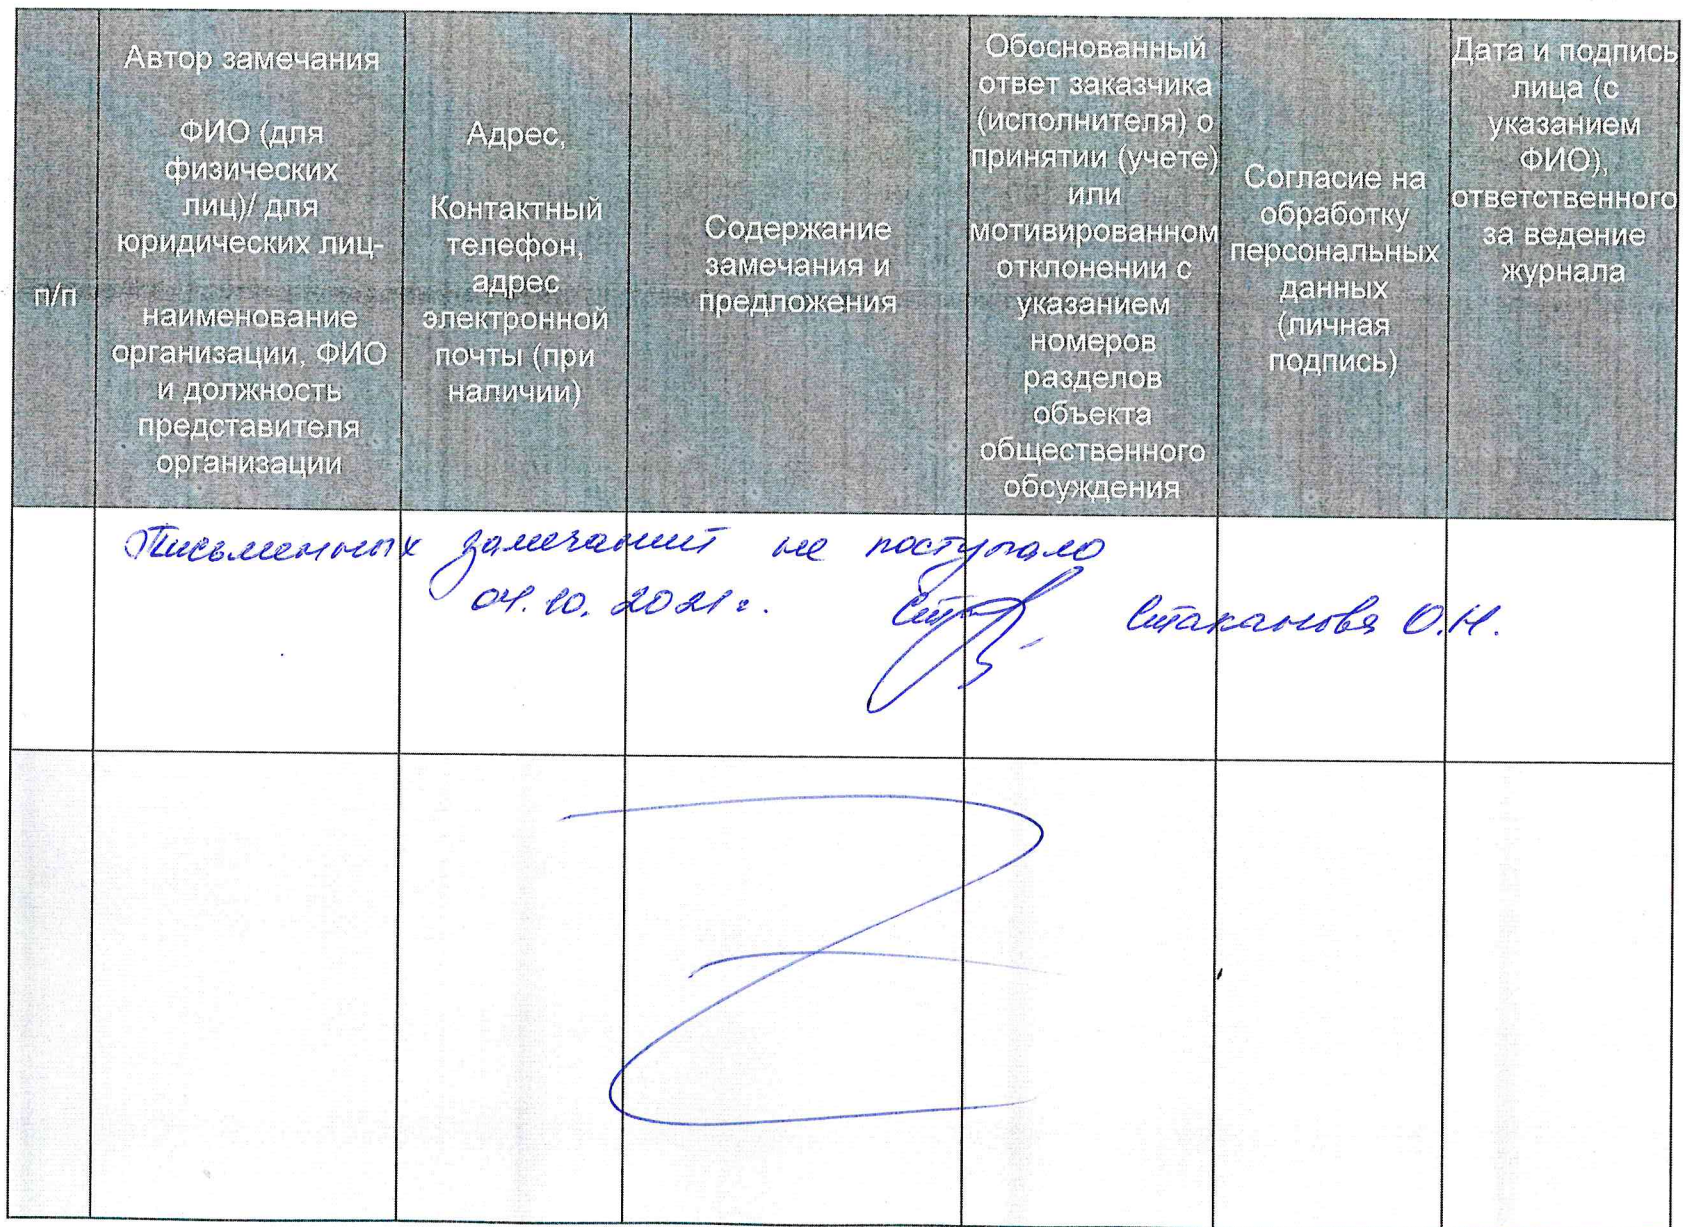 п/п
Автор замечания
ФИО (для
физических
лиц)/ для
юридических лиц-
наименование
организации, ФИО
и должность
представителя
организации
Адрес,
Контактный
телефон,
адрес
электронной
почты (при
наличии)
Содержание
замечания и
предложения
Обоснованный
ответ заказчика
(исполнителя) о
принятии (учете)
или
мотивированном
отклонении с
указанием
номеров
разделов
объекта
общественного
обсуждения
Согласие на
обработку
персональных
данных
(личная
подпись)
Дата и подпись
лица (с
указанием
ФИО),
ответственного
за ведение
журнала
Письменных замечаний не поступало
04.10.2021г. Стаканова О.Н.